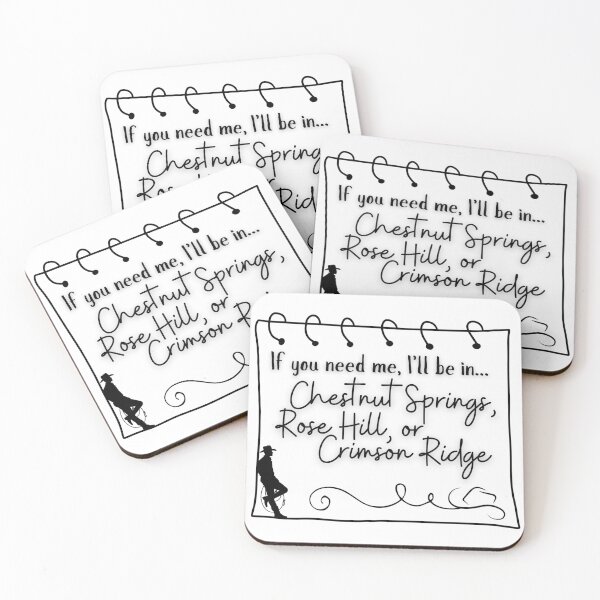 If you need me, I'll be in...
Chestnut
Rose
If you need me, I'll be in...
Chestnut Springs,
Rose Hill, or
Crimson Ridge
If you need me, I'll be in...
Chestnut Springs,
Rose Hill, or
Crimson
If you need me, I'll be in...
Chestnut Springs,
Rose Hill, or
Crimson Ridge